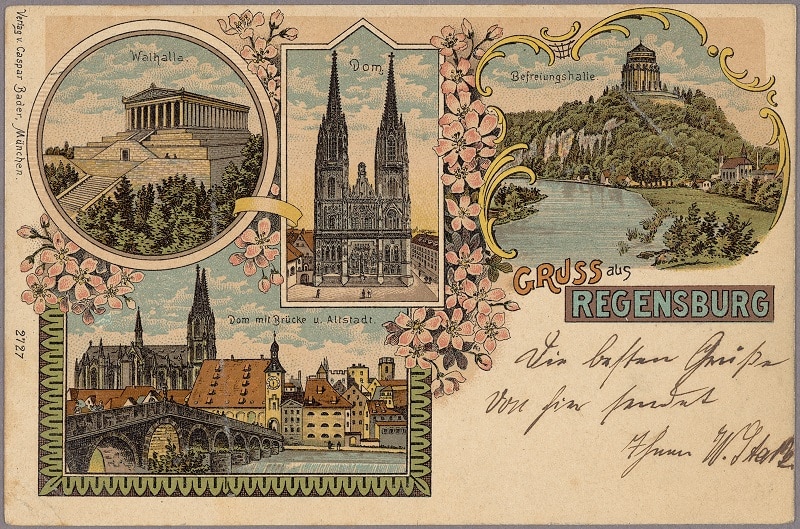 Verlag v. Caspar Bader, München.
2727
Walhalla.
Dom.
Befreiungshalle.
Dom mit Brücke u. Altstadt.
GRUSS aus
REGENSBURG
Die besten Grüße
von hier sendet
Ihnen W.